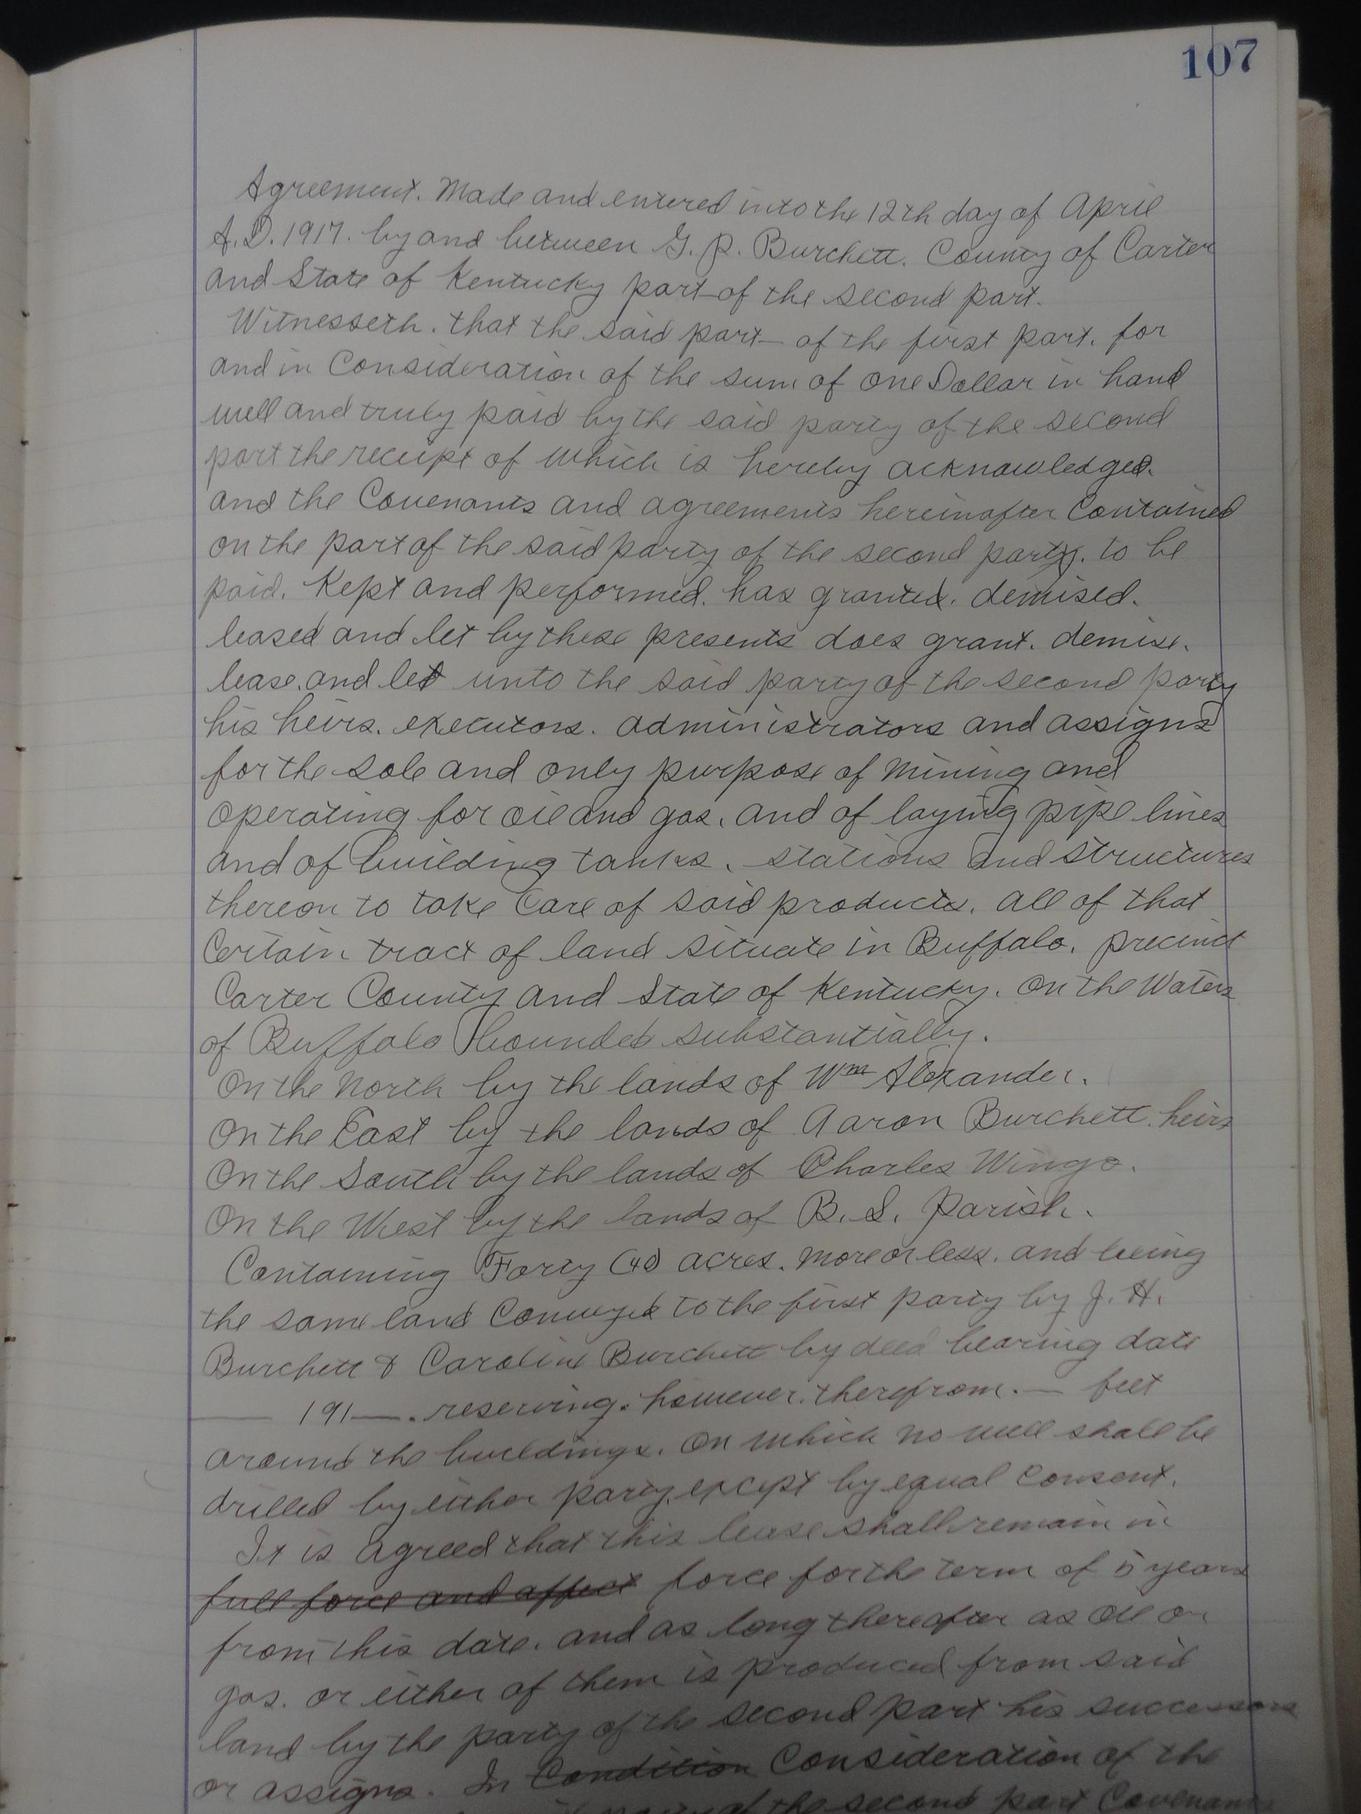 107
Agreement. Made and entered into the 12th day of April
A.D. 1917. by and between G. P. Burchett. County of Carter
and State of Kentucky part— of the second part.
Witnesseth. that the said part— of the first part. for
and in Consideration of the sum of one Dollar in hand
well and truly paid by the said party of the second
part the receipt of which is hereby acknowledged.
and the Covenants and agreements hereinafter Contained
on the part of the said party of the second party. to be
paid. Kept and performed. has granted. demised.
leased and let by these presents does grant. demise.
lease. and let unto the said party of the second party
his heirs. executors. administrators and assigns
for the sole and only purpose of mining and
operating for oil and gas. and of laying pipe lines
and of building tanks. stations and structures
thereon to take Care of said products. all of that
Certain tract of land situate in Buffalo. precinct
Carter County and State of Kentucky. on the Waters
of Buffalo bounded substantially.
On the North by the lands of Wm Alexander.
On the East by the lands of Aaron Burchett heirs
On the South by the lands of Charles Wingo.
On the West by the lands of B. S. Parish.
Containing Forty (40) acres. more or less. and being
the same land Conveyed to the first party by J. H.
Burchett & Caroline Burchett by deed bearing date
—— 191—. reserving. however. therefrom. — feet
around the buildings. On which no well shall be
drilled by either party. except by equal Consent.
It is agreed that this lease shall remain in
full force and affect force for the term of 5 years
from this date. and as long thereafter as oil or
gas. or either of them is produced from said
land by the party of the second part his successors
or assigns. In Condition Consideration of the
party of the second part Covenants